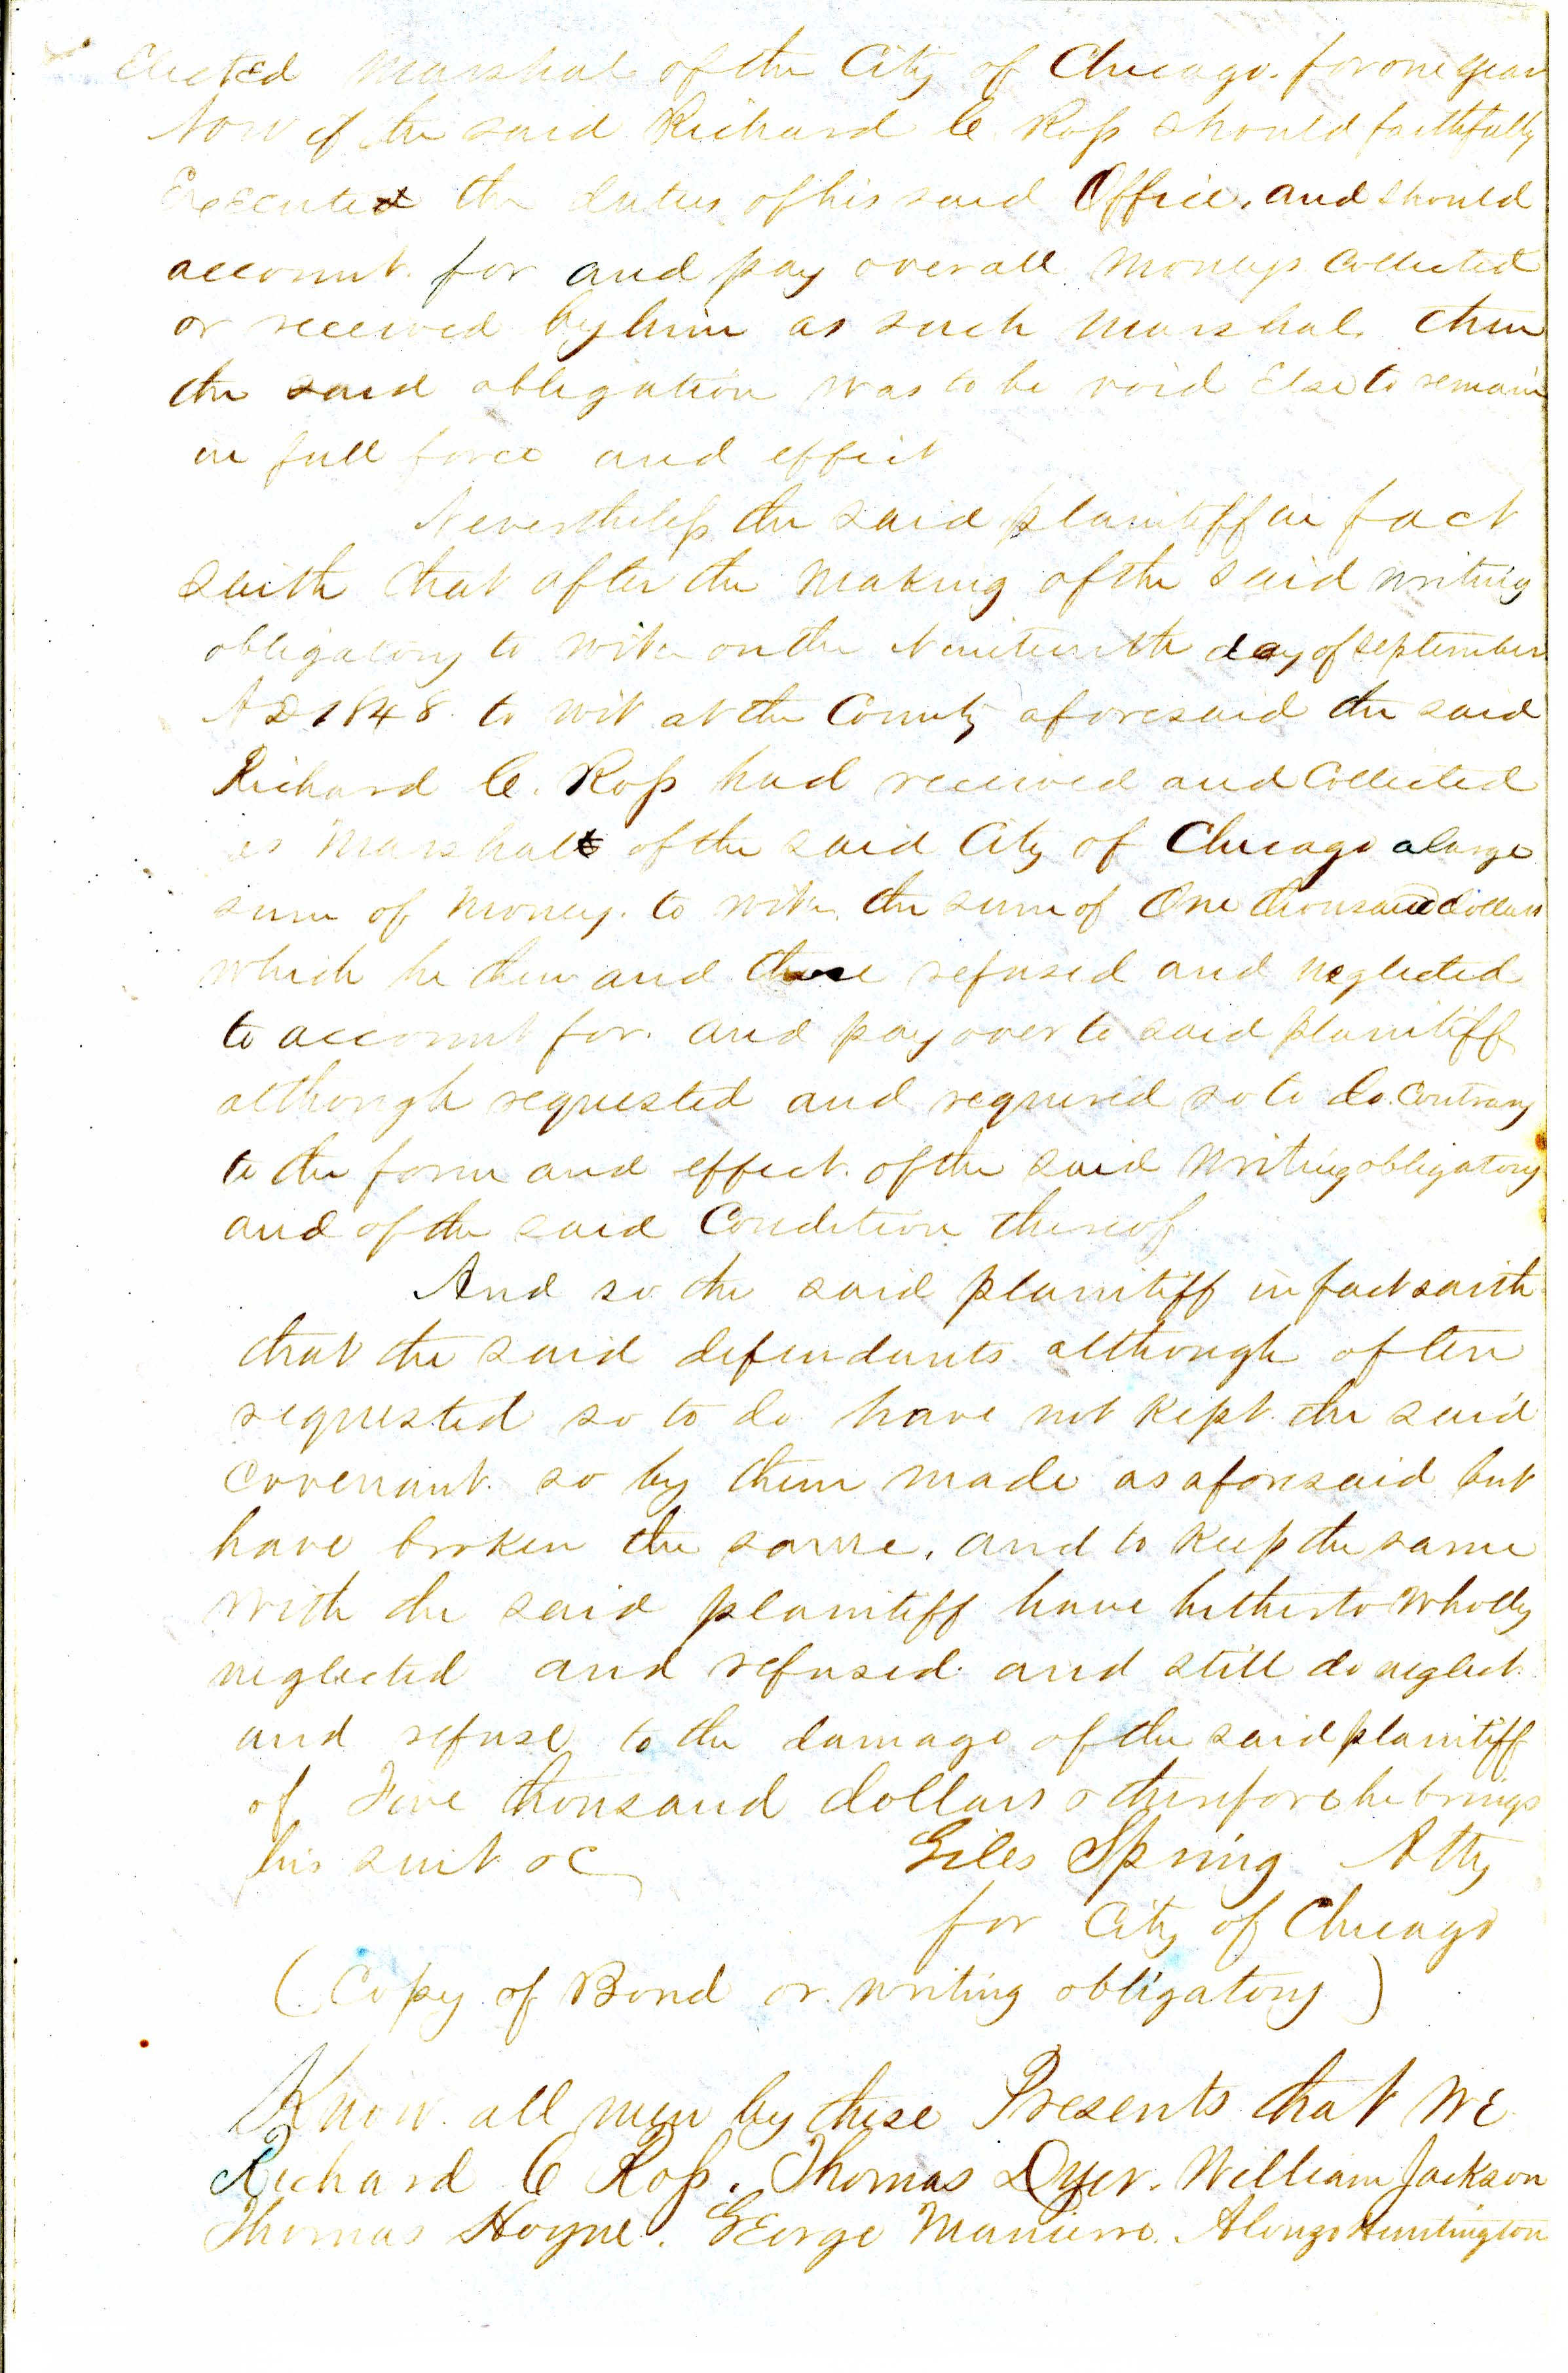 Elected Marshal of the City of Chicago. for one year
Now if the said Richard C. Ross should faithfully
Execute the duties of his said Office. and should
account for and pay over all moneys Collected
or received by him as such Marshal, then
the said obligation was to be void Else to remain
in full force and effect
Nevertheless the said plaintiff in fact
saith that after the making of the said writing
obligatory to wit on the Nineteenth day of September
A D 1848. to wit at the County aforesaid the said
Richard C. Ross had received and Collected
as Marshal of the said City of Chicago a large
sum of money. to wit. the sum of One thousand dollars
which he then and there refused and neglected
to account for. and pay over to said plaintiff
although requested and required so to do. Contrary
to the form and effect. of the said writing obligatory
and of the said Condition thereof
And so the said plaintiff in fact saith
that the said defendants although often
requested so to do have not kept the said
Covenant. so by them made as aforesaid but
have broken the same. and to keep the same
with the said plaintiff have hitherto wholly
neglected and refused. and still do neglect
and refuse, to the damage of the said plaintiff
of Five thousand dollars & therefore he brings
his suit &c
Giles Spring Atty
for City of Chicago
(Copy of Bond or writing obligatory)
Know all men by these Presents that we
Richard C Ross. Thomas Dyer. William Jackson
Thomas Hoyne. George Manierre. Alonzo Huntington